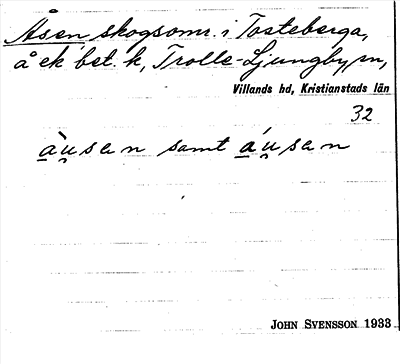 Åsen skogsomr. i Tosteberga,
å ek bet. k, Trolle-Ljungby sn,
Villands hd, Kristianstads län
32
àu̯sen samt áu̯san
JOHN SVENSSON 1933